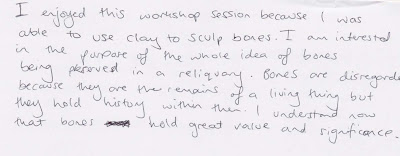 I enjoyed this workshop session because I was
able to use clay to sculp bones. I am interested
in the purpose of the whole idea of bones
being perserved in a reliquary. Bones are disregarde
because they are the remains of a living thing but
they hold history within them. I understand now
that bones hold great value and significance.